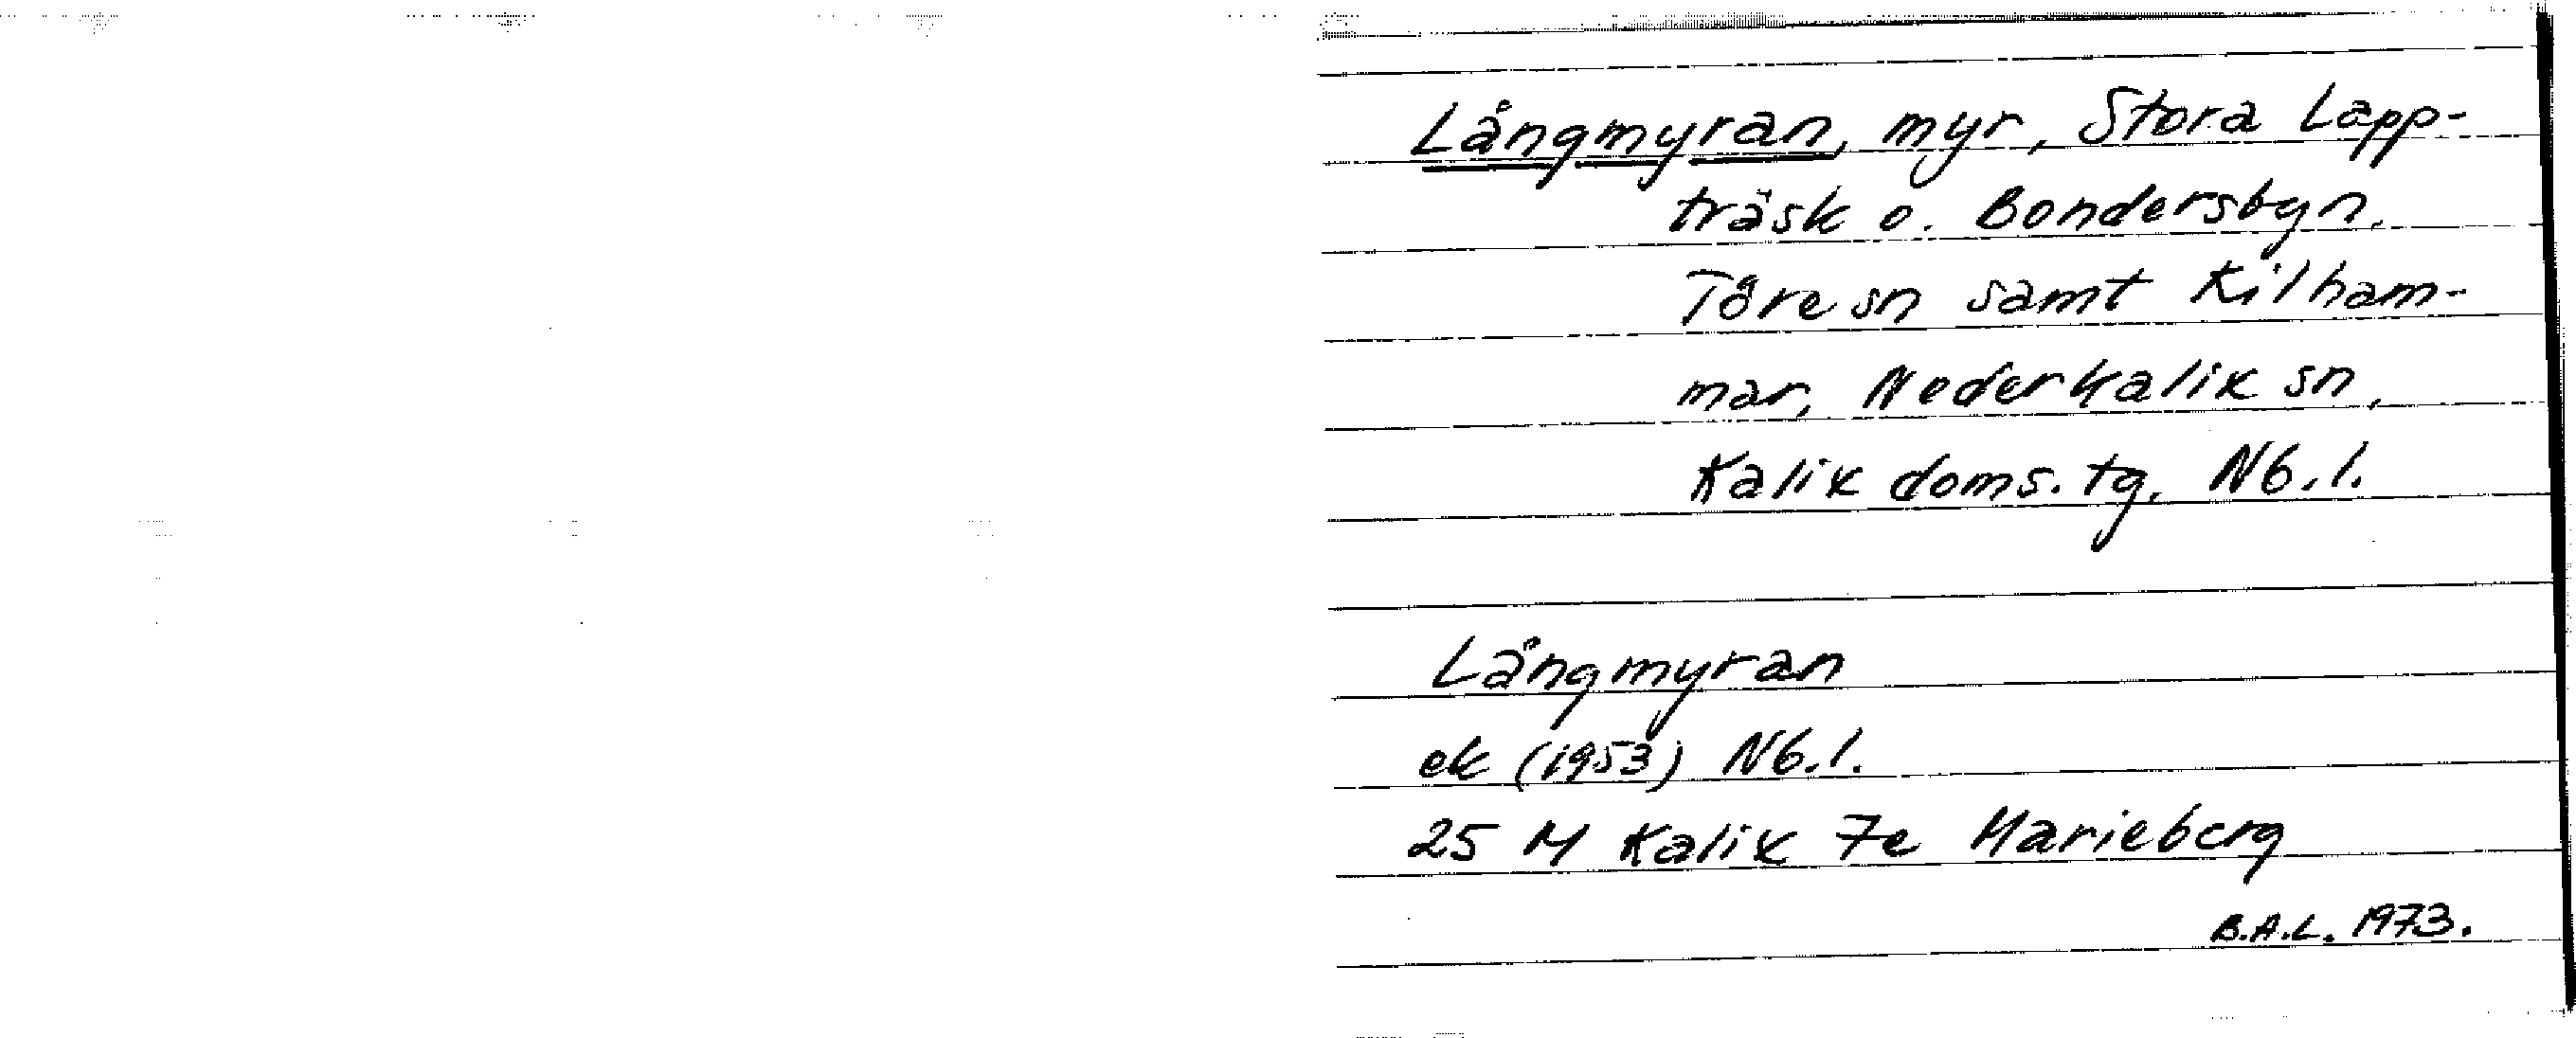 Långmyran, myr, Stora Lapp-
träsk o. Bondersbyn,
Töre sn samt Kilham-
mar, Nederkalix sn,
Kalix doms. tg. Nb. l.
Långmyran
ek (1953) Nb. l.
25 M Kalix 7e Marieberg
B.A.L. 1973.